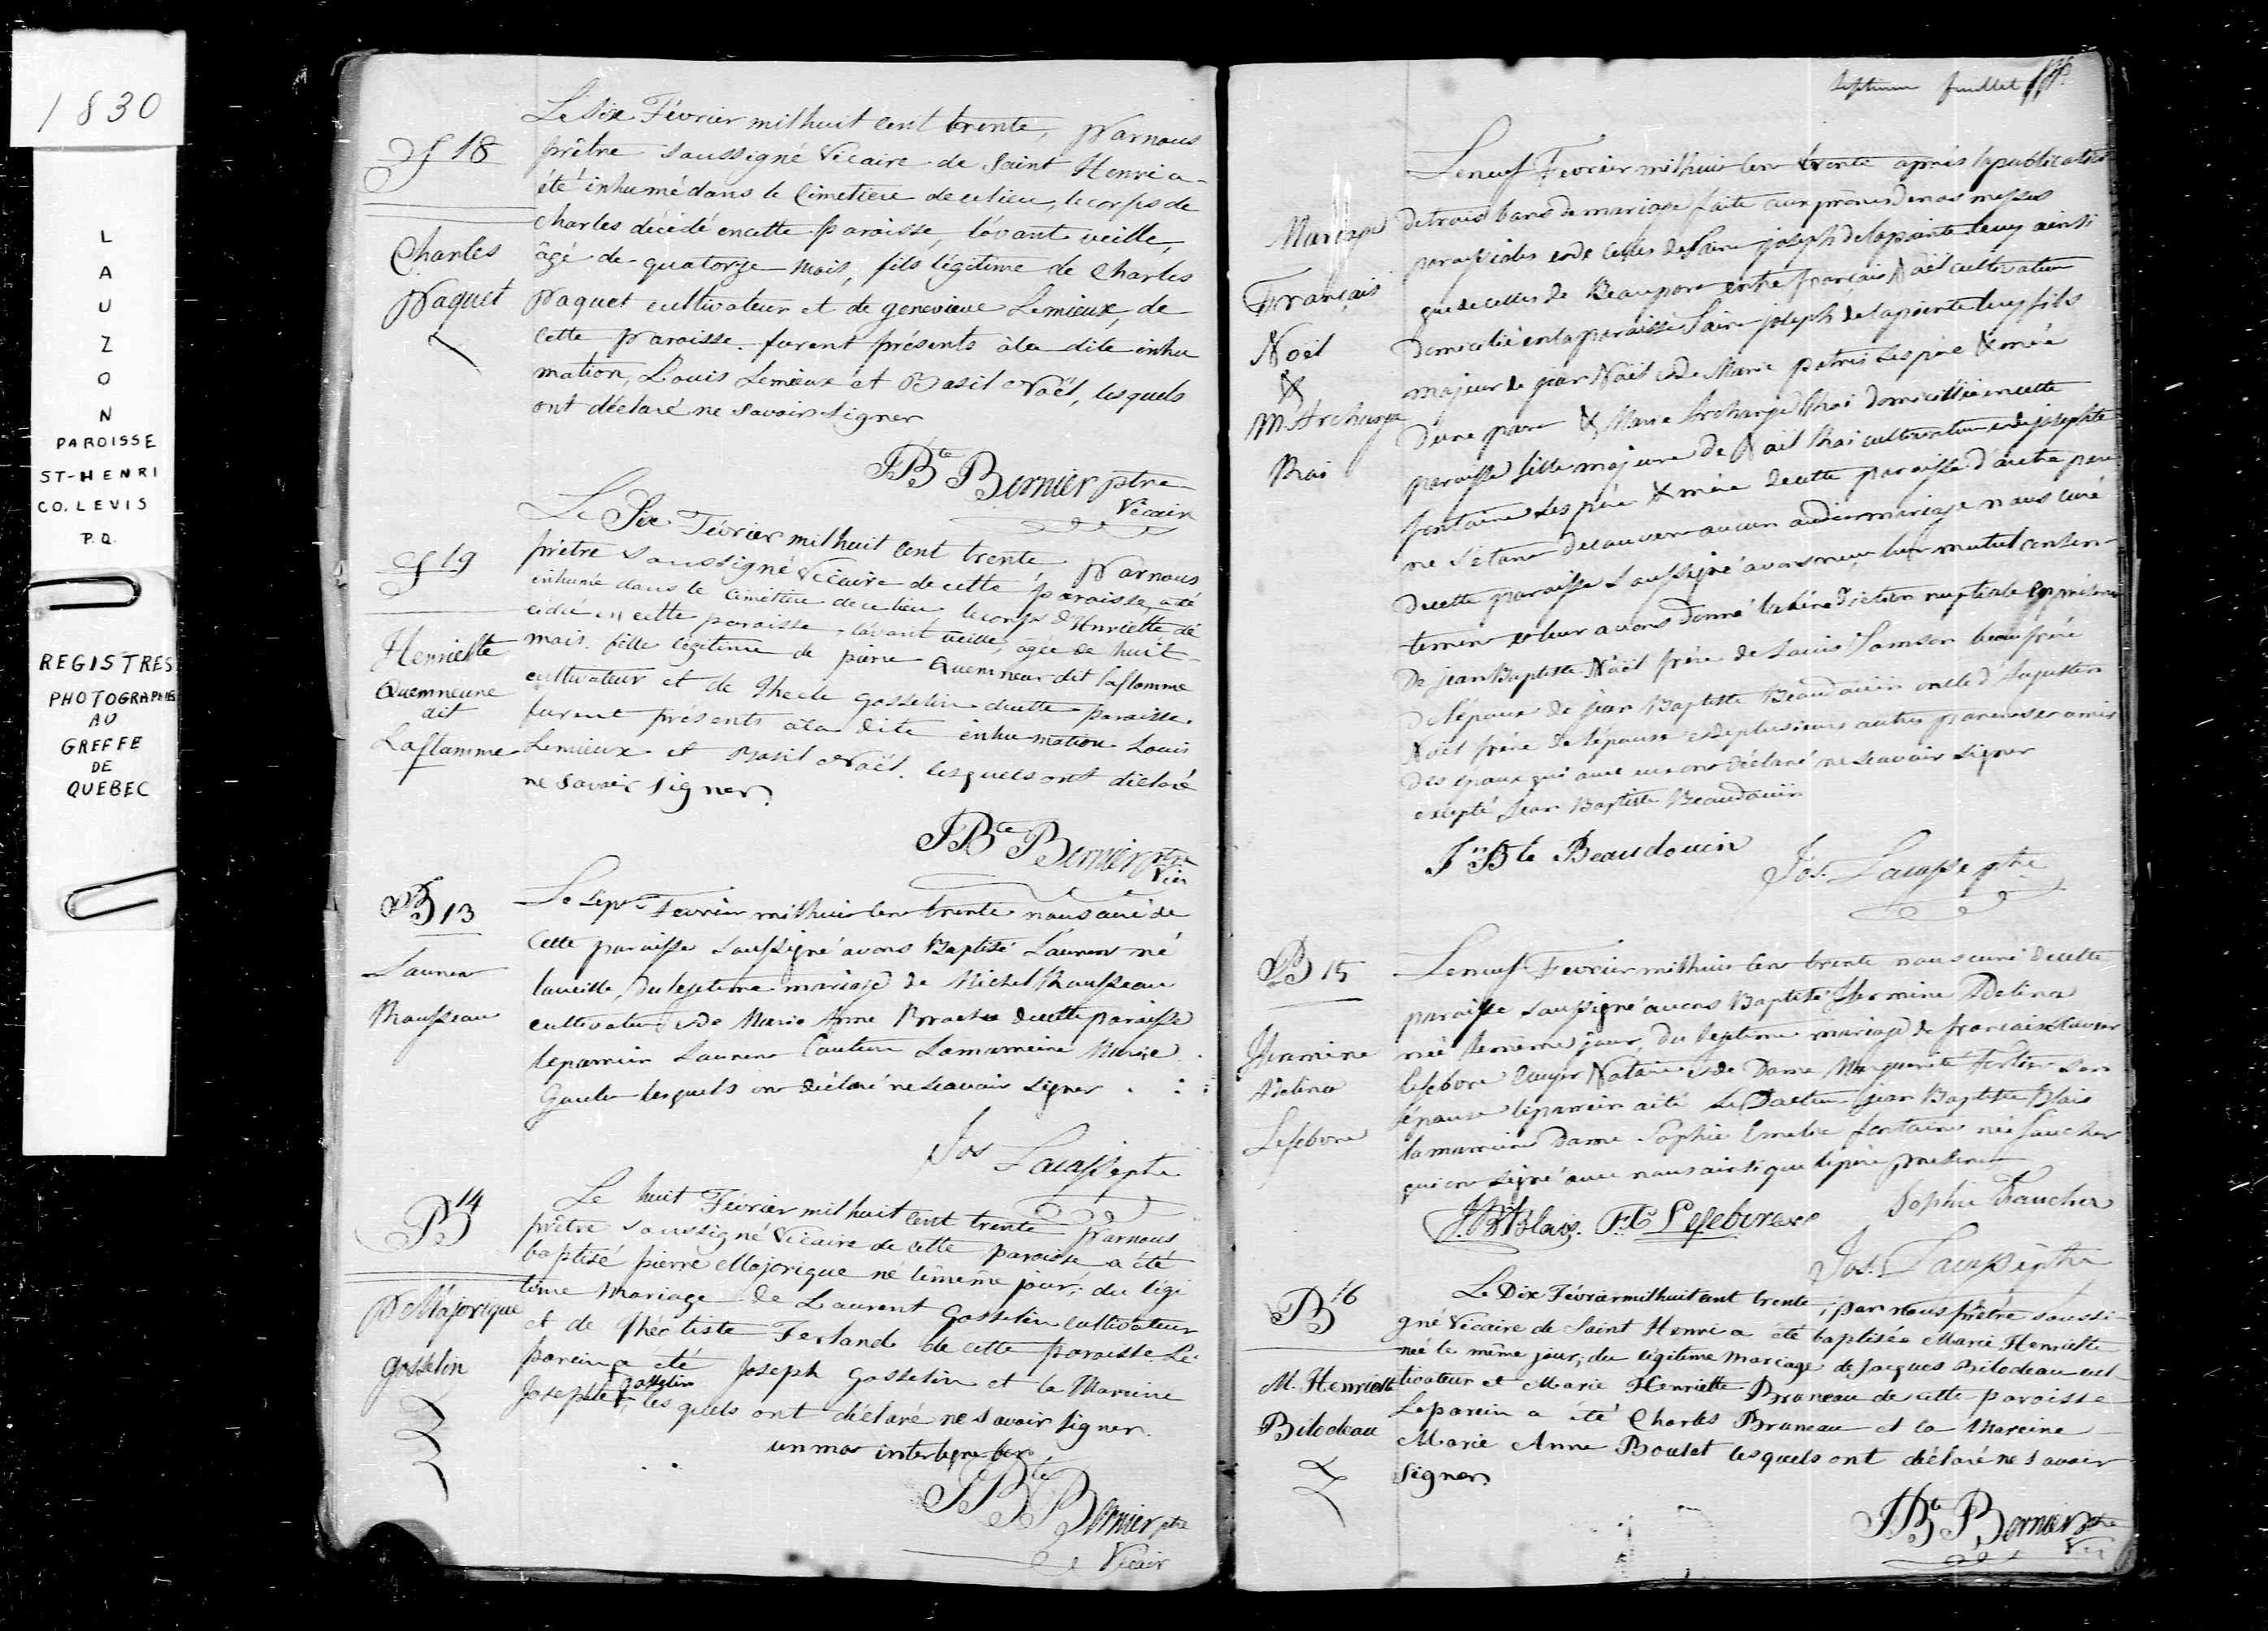 1830
L
A
U
Z
O
N
PAROISSE
ST-HENRI
CO. LEVIS
P.Q.
REGISTRES
PHOTOGRAPHIES
AU
GREFFE
DE
QUEBEC
S 18
Charles
Paquet
Le Six Février mil huit cent trente, Par nous
prêtre soussigné Vicaire de Saint Henri a
été inhumé dans le Cimetiere de ce lieu, le corps de
Charles décédé en cette paroisse, l'avant veille,
âgé de quatorze mois, fils légitime de Charles
Paquet cultivateur et de genevieve Lemieux, de
cette Paroisse. furent présents à la dite inhu
mation, Louis Lemieux et Basil Noël, lesquels
ont déclaré ne savoir signer
JBte Bernier ptre
Vicair
S 19
Henriette
Quemneure
dit
Laflamme
Le Six Février mil huit cent trente, Par nous
prêtre soussigné Vicaire de cette paroisse, a été
inhumé dans le cimetiere de ce lieu le corps d'Henriette dé
cédée en cette paroisse l'avant veille, agée de huit
mois. fille légitime de pierre Quemneur dit laflamme
cultivateur et de Thecle Gosselin de cette paroisse.
furent présents à la dite inhumation Louis
Lemieux et Basil Noël. lesquels ont déclaré
ne savoir signer.
JBte Bernier ptre
Vic
B 13
Lauren
Rousseau
Le Sept Fevrier mil huit cen trente nous curé de
Cette paroisse soussigné avons Baptisé Lauren né
la veille, du legitime mariage de Michel Rousseau
cultivateur et de Marie Anne de cette paroisse
le parrain Lauren Couture La marreine Marie
lesquels on déclaré ne scavoir signer
Jos Lacasse ptre
B 14
P. Majorique
gosselin
Le huit Février mil huit cent trente par nous
prêtre soussigné Vicaire de cette paroisse a été
baptisé pierre Majorique né le même jour; du légi
time mariage de Laurent Gosselin cultivateur
et de Théotiste Ferland de cette paroisse. Le
parein a été Joseph Gosselin et la Mareine
Josephte gosselin, lesquels ont déclaré ne savoir signer.
un mot interligne bon
JBte Bernier ptre
Vicair
Septieme feuillet
Mariage
Français
Noël
&
M. Archange
Roi
Le neuf Fevrier mil huit cen trente après la publication
de trois bans de mariage faite aux prônes de nos messes
paroissiales et de celles de Saint joseph de la pointe levy ainsi
que de celles de Beaupor entre français Noël cultivateur
domicilié en la paroisse Saint joseph de la pointe levy fils
majeur de jean Noël et de Marie patris ses père & mère
d'une part & Marie Archange Roi domiciliée en cette
paroisse fille majeure de Noël Roi cultivateur et de josephte
fontaine ses père & mère de cette paroisse d'autre part
ne s'étant decouver aucun au dit mariage nous curé
de cette paroisse soussigné avons reçu leur mutuel consen-
temen et leur avons donné la bénédiction nuptiale en présence
De jean Baptiste Noël frère de Louis Samson beaufrère
De l'époux de jean Baptiste Beaudouin oncle d'Augustin
Noël frère de l'épouse et de plusieurs autres parens et amis
Des époux qui avec eux ont déclaré ne scavoir signer
excepté Jean Baptiste Beaudouin
Jn Bte Beaudouin
Jos. Lacasse ptre
B 15
Hermine
Adelina
Lefebvre
Le neuf Fevrier mil huit cen trente nous curé de cette
paroisse soussigné avons Baptisé Hermine Adelina
née le même jour, du legitime mariage de francais
Lefebvre Ecuyer Notaire et de Dame Marguerite Fortier son
épouse le parrein a été Le Docteur jean Baptiste Blais
la marreine Dame Sophie Emelie fontaine née faucher
qui on signé avec nous ainsi que le père présen
JBte Blais. F. Lefebvre Sophie Faucher
Jos. Lacasse ptre
B 16
M. Henriette
Bilodeau
Le Dix Février mil huit cent trente, par nous prêtre soussi-
gné Vicaire de Saint Henri a été baptisée Marie Henriette
née le même jour, du légitime mariage de Jacques Bilodeau cul-
tivateur et Marie Henriette Bruneau de cette paroisse
Le parein a été Charles Bruneau et la Mareine
Marie Anne Boulet lesquels ont déclaré ne savoir
signer
JBte Bernier ptre
Vic